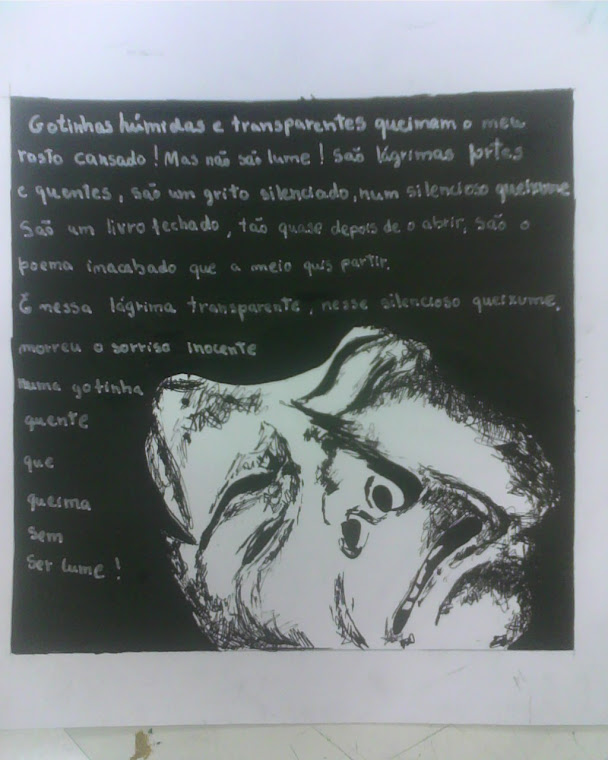 Gotinhas húmidas e transparentes queimam o meu
rosto cansado! Mas não são lume! São lágrimas fortes
e quentes, são um grito silenciado, num silencioso queixume
São um livro fechado, tão quase depois de o abrir, são o
poema inacabado que a meio quis partir.
E nessa lágrima transparente, nesse silencioso queixume,
morreu o sorriso inocente
numa gotinha
quente
que
queima
sem
ser lume!